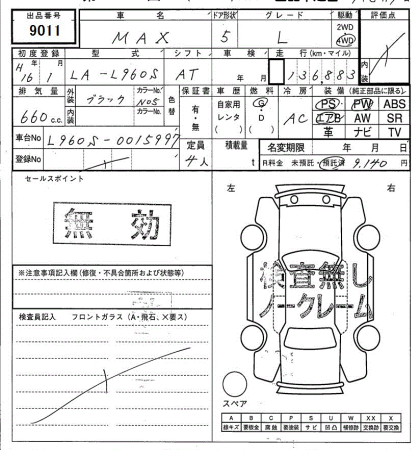 出品番号 車名 ドア形状 グレード 駆動 評価点
9011 MAX 5 L 2WD 4WD
初度登録 型式 シフト 車検 走行(km・マイル) 内装
H16年1月 LA-L960S AT 年 月 136883
排気量 外装 ブラック カラーNo. N05 色替 保証書 車歴 燃料 冷房 装備(純正部品に限る)
660c.c. 内装 カラーNo. 有・無 自家用 レンタ ( ) G・D ( ) AC PS PW ABS
エアB AW SR
革 ナビ TV
車台No L960S-0015997 定員 4人 積載量 t 名変期限 年 月 日
登録No R料金 未預託 預託済 9,140円
セールスポイント 左 右
無効
検査無し
ノークレーム
※注意事項記入欄(修復・不具合箇所および状態等)
検査員記入 フロントガラス(A・飛石、X要ス)
スペア
A B C P S U W X XX
線キズ 要板金 腐蝕 要塗装 サビ 凹凸 補修跡 交換跡 要交換